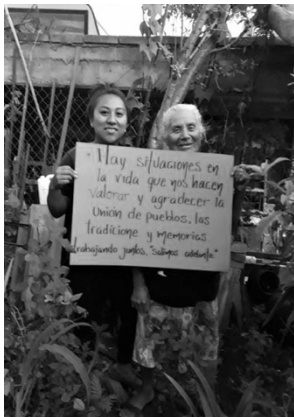 "Hay situaciones en
la vida que nos hacen
valorar y agradecer la
Unión de pueblos, las
tradicione y memorias
trabajando juntos, "Salimos adelante"